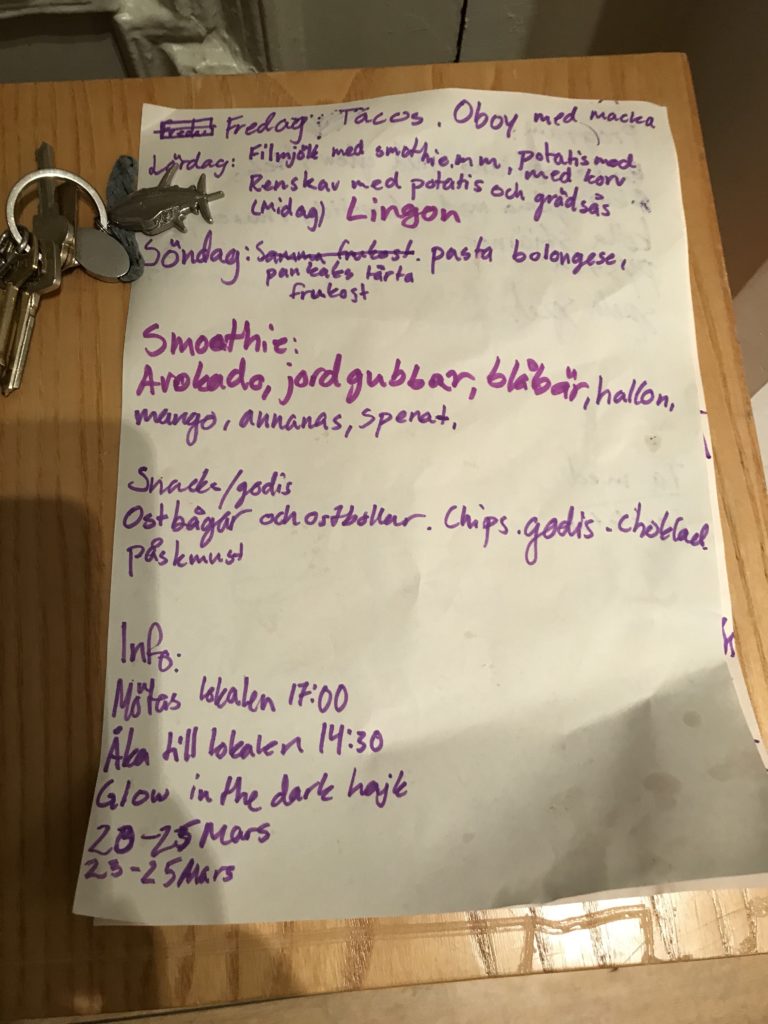 Fredag: Tacos. Oboy med macka
Lördag: Filmjölk med smothie.m m, potatis med
med korv
Renskav med potatis och grädsås
(Midag) Lingon
Söndag: Samma frukost. pasta bolongese,
pankaks tårta
frukost
Smoothie:
Avokado, jordgubbar, blåbär, hallon,
mango, annanas, spenat.
Snacks/godis
Ostbågar och ostbollar. Chips. godis. choklad
påskmust
Info:
Mötas lokalen 17:00
Åka till lokalen 14:30
Glow in the dark hajk
23-25 Mars
23-25 Mars